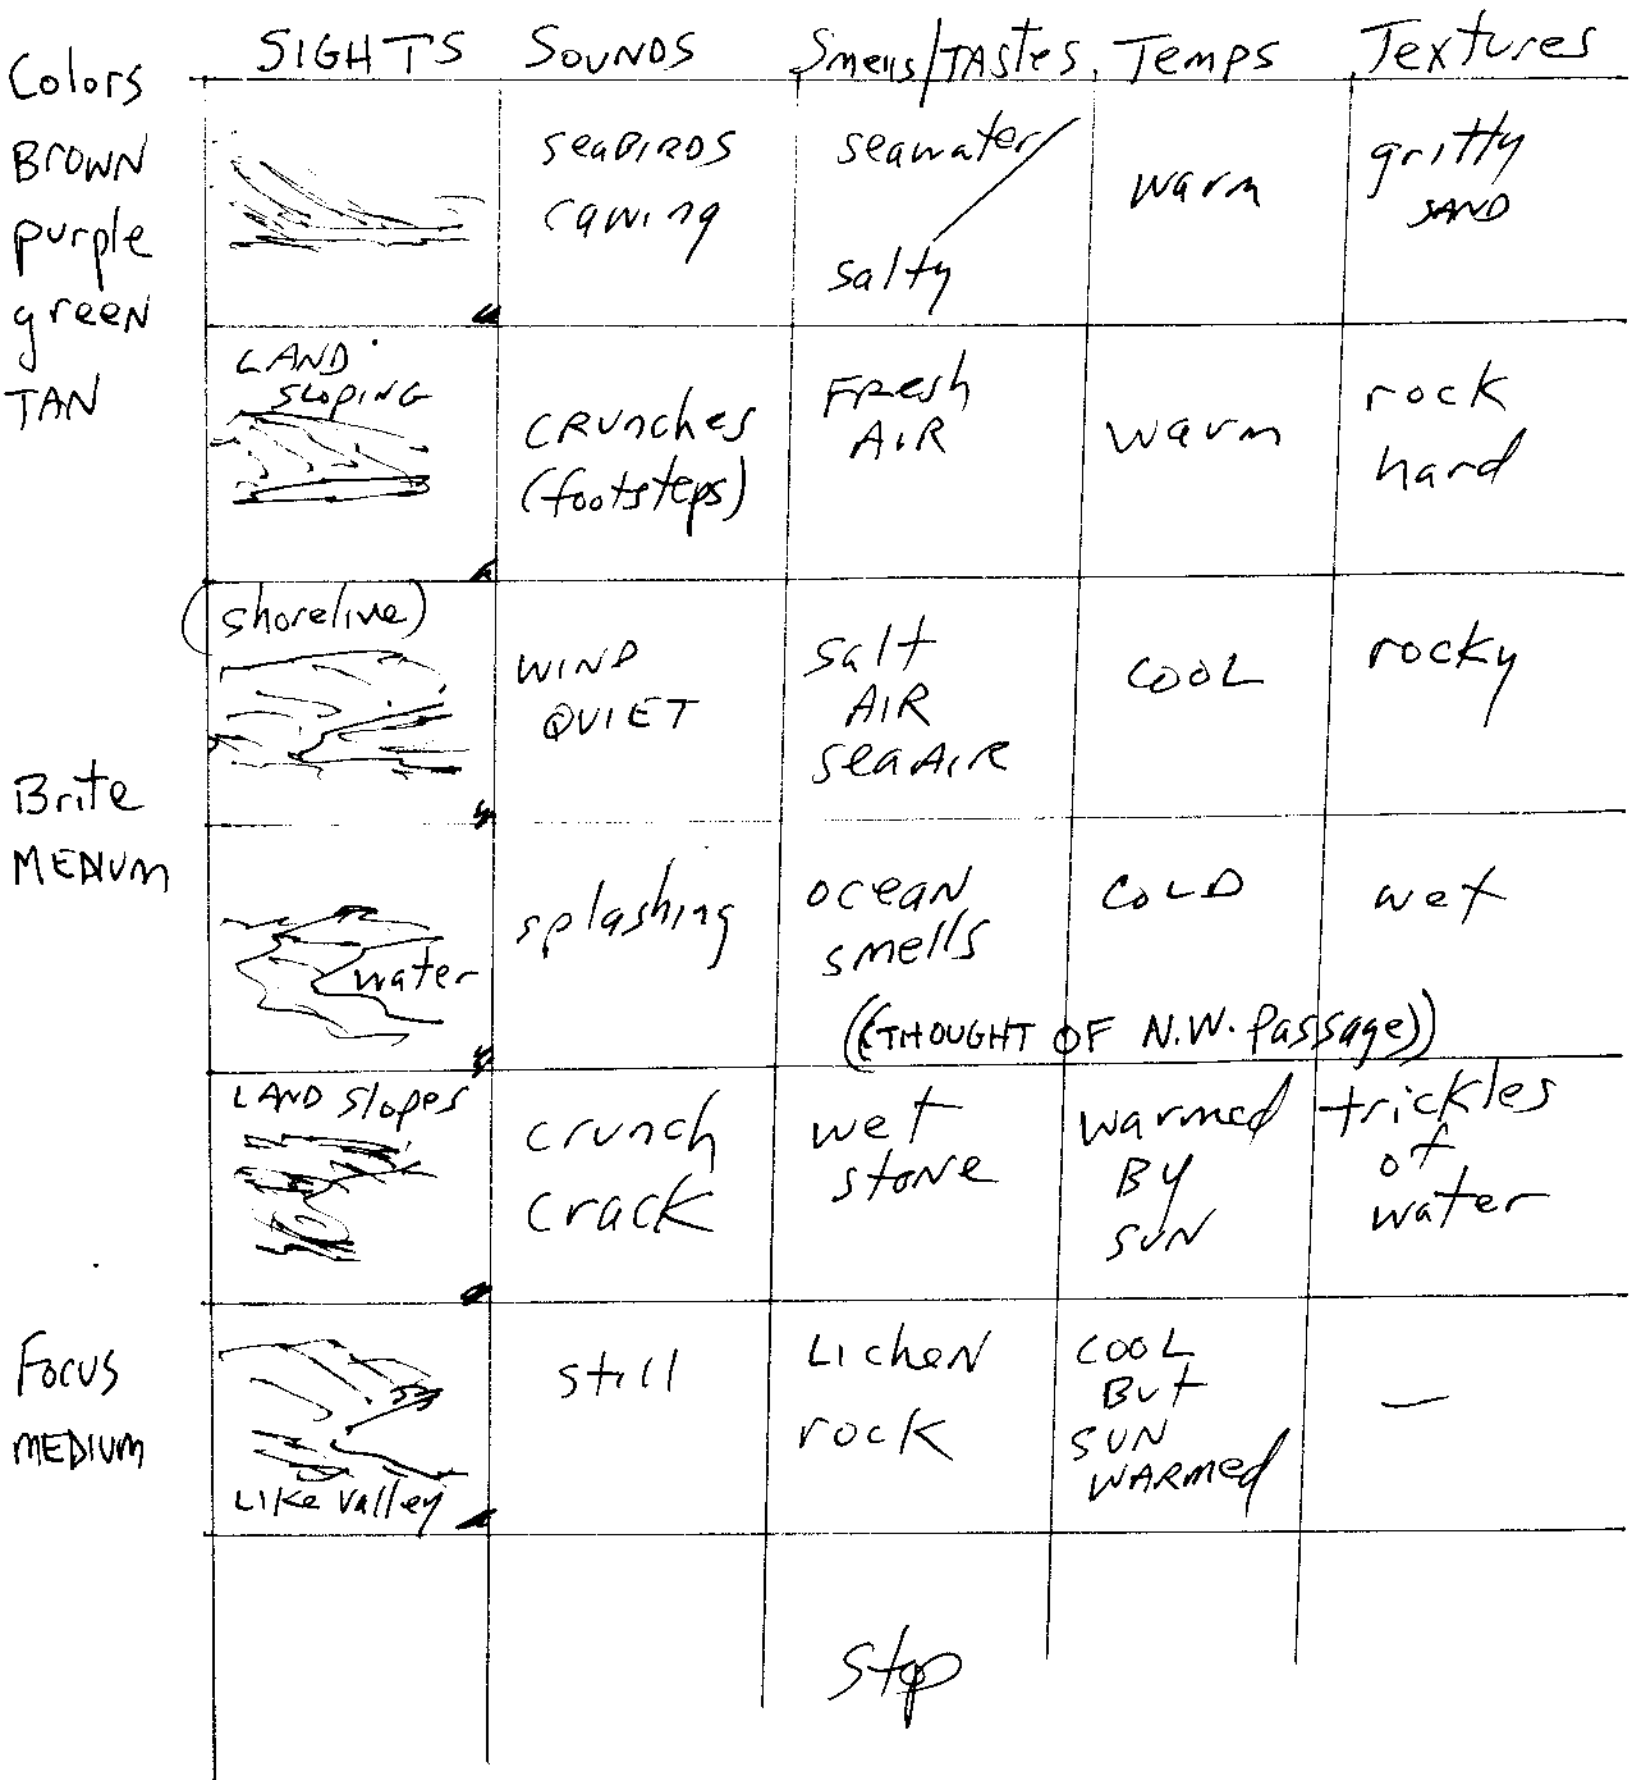 Colors SIGHTS SOUNDS Smells/TAStes Temps Textures
BROWN
purple
green
TAN
seaBIRDS
cawing
seawater
salty
warm
gritty
SAND
LAND
SLOPING
CRUnches
(footsteps)
FResh
AIR
warm
rock
hard
(shoreline)
WIND
QUIET
salt
AIR
sea AIR
COOL
rocky
Brite
MEDIUM
water
splashing
oceaN
smells
COLD
wet
((THOUGHT OF N.W. Passage))
LAND slopes
crunch
crack
wet
stoNe
warmed
BY
SUN
trickles
of
water
Focus
MEDIUM
LIKe valley
still
LicheN
rock
COOL
BUt
SUN
WARmed
—
Stop